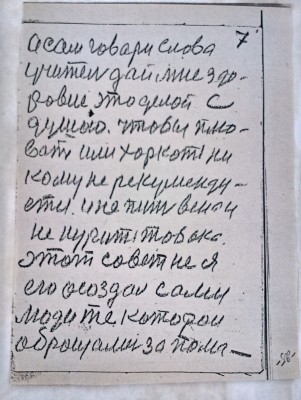 7
а сам говари слова
учител дай мне здо-
ровие это делой с
душою. чтобы плю-
ват или харкот ни
кому не рекуменду-
ети. и не пит вена и
не курит товака.
этот совет не я
его осоздал сами
люди те которои
оброщали за пома-